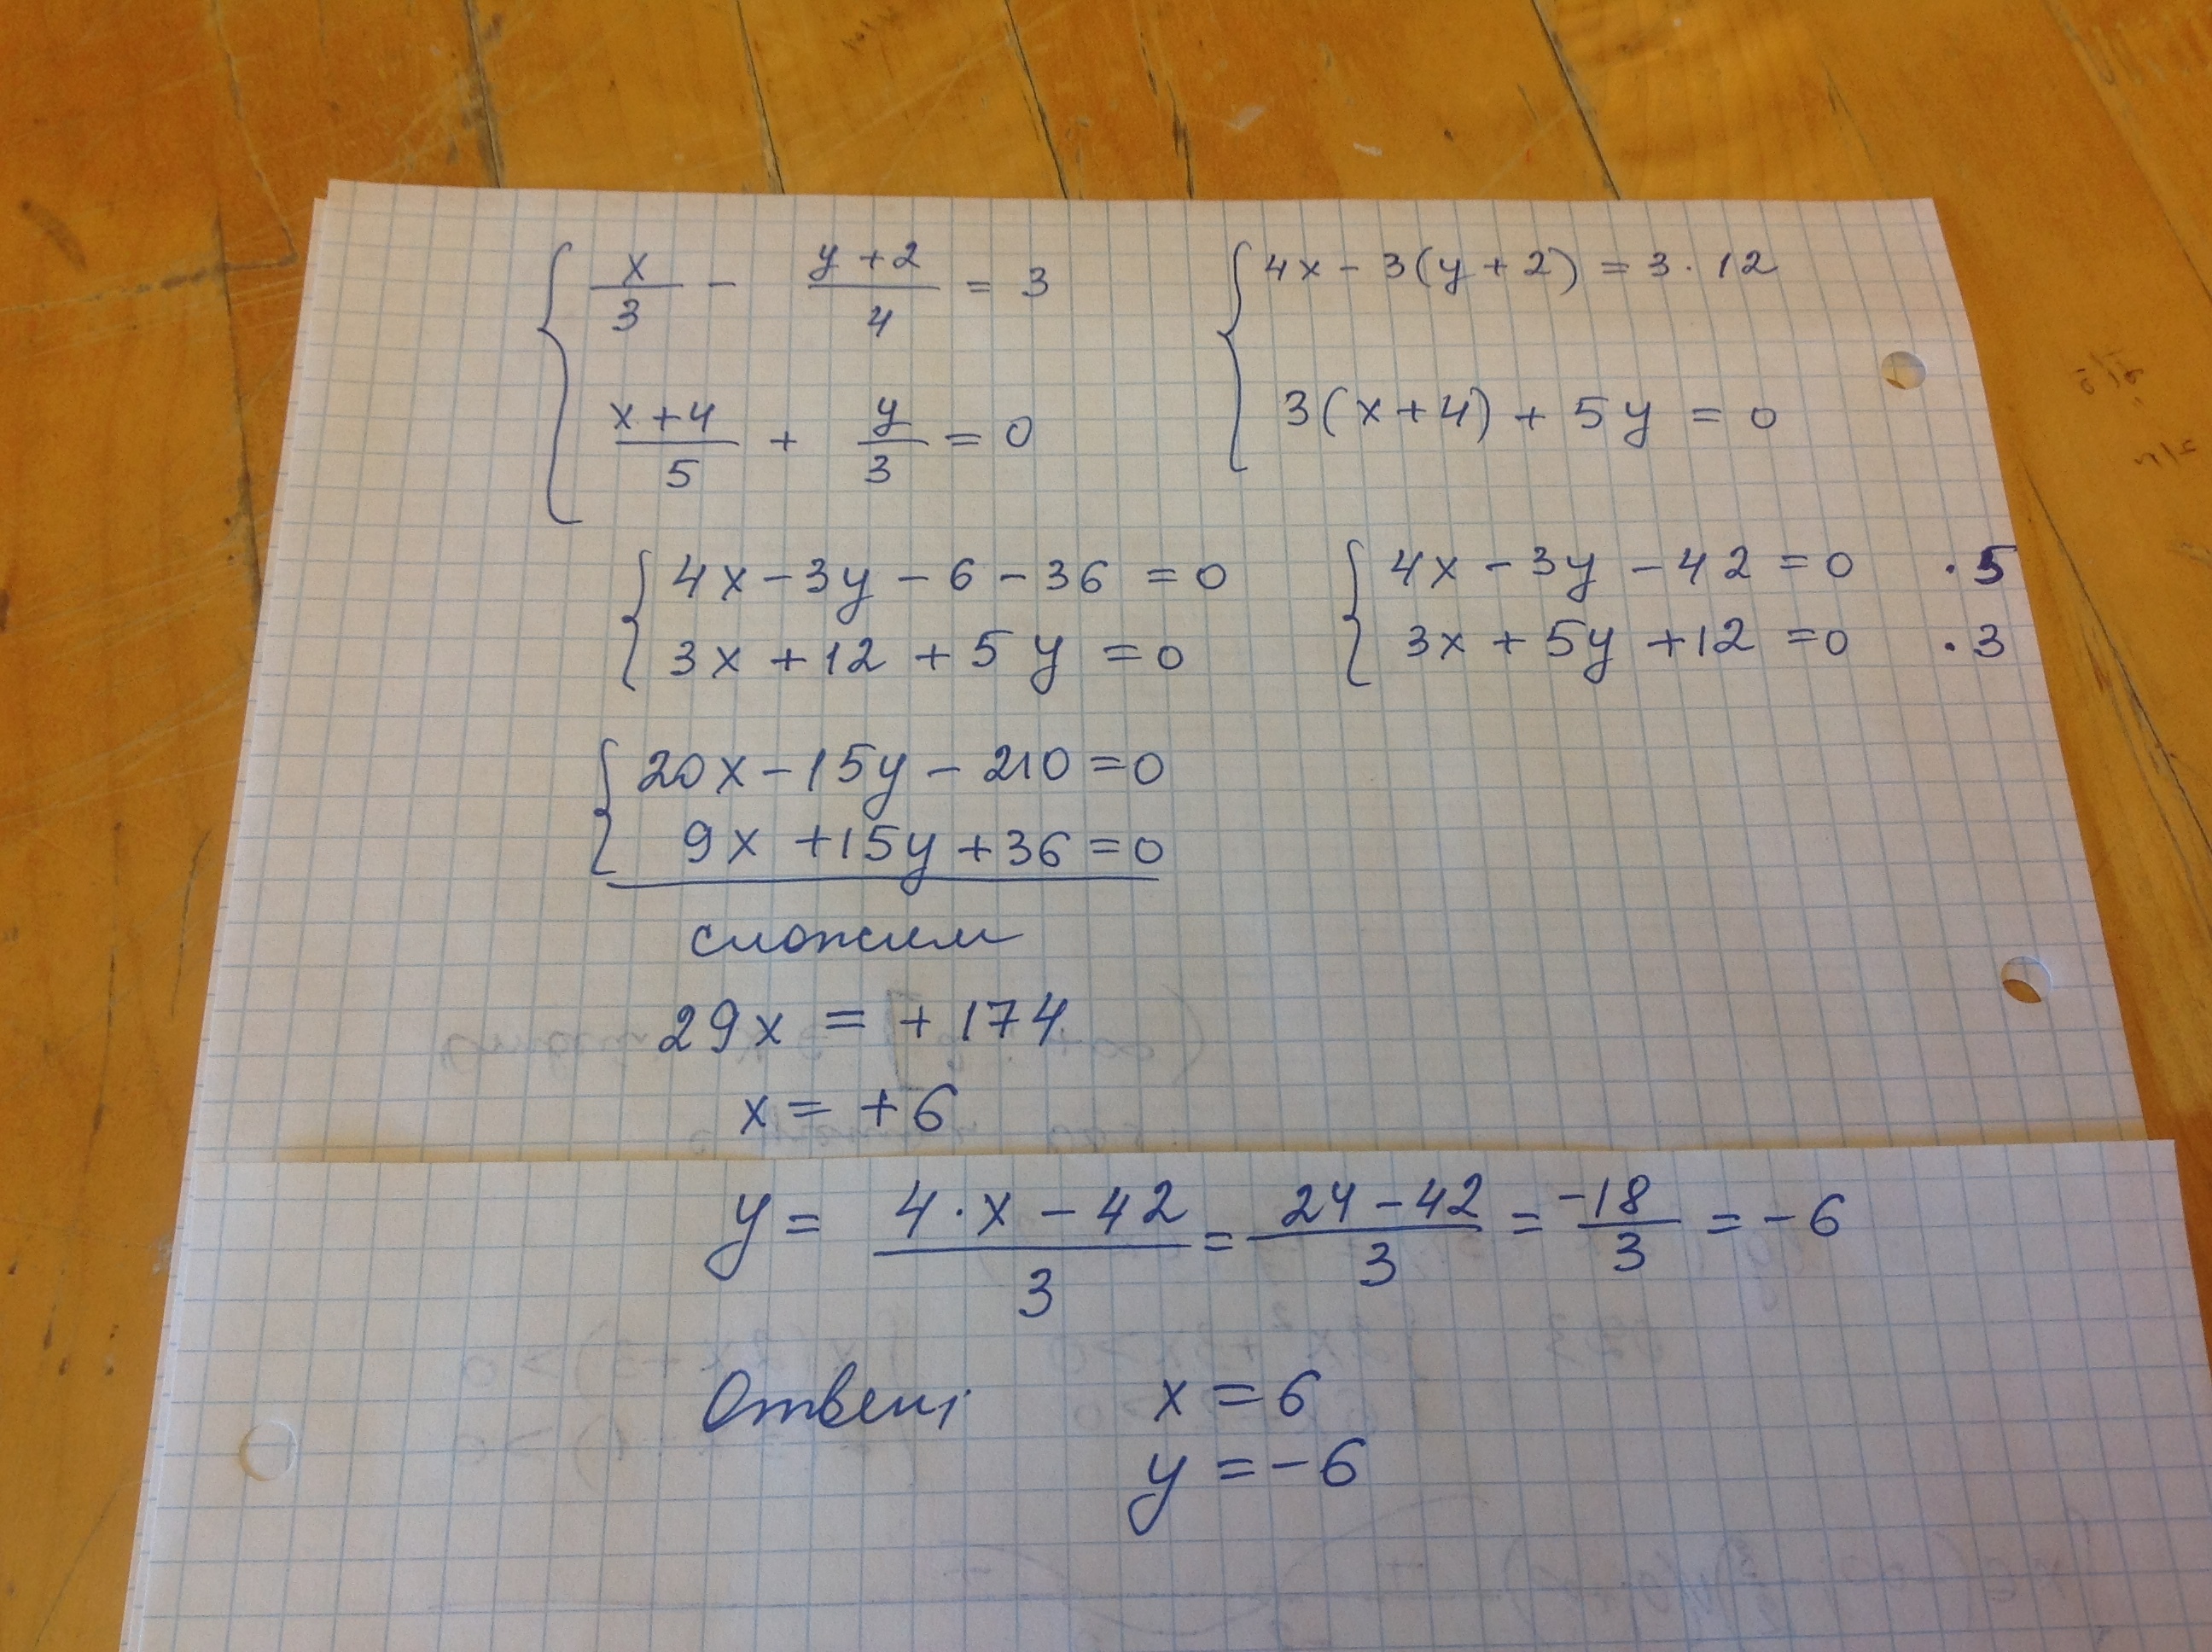 x/3 - (y+2)/4 = 3
(x+4)/5 + y/3 = 0
4x - 3(y+2) = 3·12
3(x+4) + 5y = 0
4x - 3y - 6 - 36 = 0
3x + 12 + 5y = 0
4x - 3y - 42 = 0 ·5
3x + 5y + 12 = 0 ·3
20x - 15y - 210 = 0
9x + 15y + 36 = 0
сложим
29x = +174
x = +6
y = (4·x - 42)/3 = (24 - 42)/3 = -18/3 = -6
Ответ: x = 6
y = -6